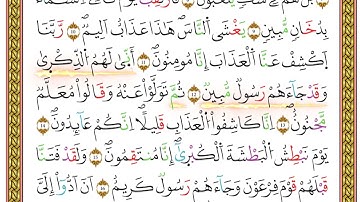 بِدُخَانٍ مُّبِينٍ ١٠ يَغْشَى النَّاسَ ۖ هَٰذَا عَذَابٌ أَلِيمٌ ١١ رَّبَّنَا
اكْشِفْ عَنَّا الْعَذَابَ إِنَّا مُؤْمِنُونَ ١٢ أَنَّىٰ لَهُمُ الذِّكْرَىٰ
وَقَدْ جَاءَهُمْ رَسُولٌ مُّبِينٌ ١٣ ثُمَّ تَوَلَّوْا عَنْهُ وَقَالُوا مُعَلَّمٌ
مَّجْنُونٌ ١٤ إِنَّا كَاشِفُو الْعَذَابِ قَلِيلًا ۚ إِنَّكُمْ عَائِدُونَ ١٥
يَوْمَ نَبْطِشُ الْبَطْشَةَ الْكُبْرَىٰ إِنَّا مُنتَقِمُونَ ١٦ وَلَقَدْ فَتَنَّا
قَبْلَهُمْ قَوْمَ فِرْعَوْنَ وَجَاءَهُمْ رَسُولٌ كَرِيمٌ ١٧ أَنْ أَدُّوا إِلَيَّ